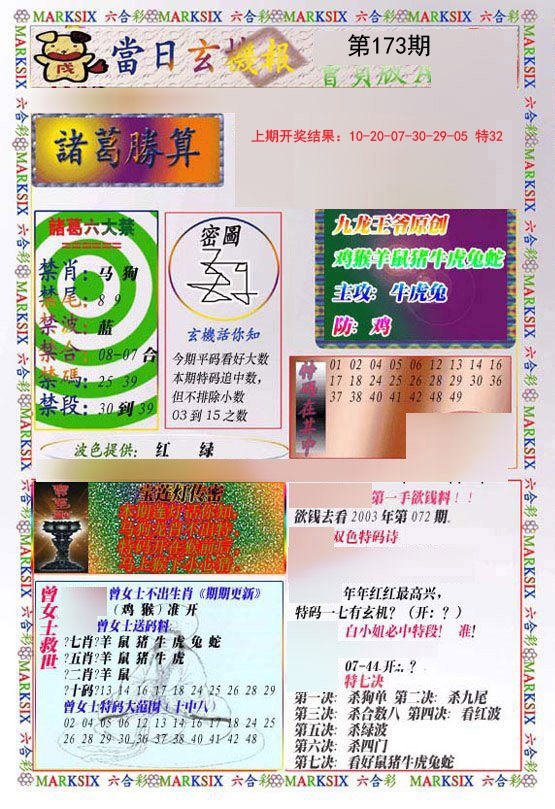 MARKSIX 六合彩 MARKSIX 六合彩 MARKSIX 六合彩 MARKSIX 六合彩 MARKSIX 六合彩
當日玄機報
第173期
諸葛勝算
上期开奖结果：10-20-07-30-29-05 特32
諸葛六大禁
禁肖：马 狗
禁尾：8 9
禁波：蓝
禁合：08-07 合
禁碼：25 39
禁段：30 到 39
密圖
玄機話你知
今期平码看好大数
本期特码追中数，
但不排除小数
03 到 15 之数
九龙王爷原创
鸡猴羊鼠猪牛虎兔蛇
主攻：牛虎兔
防：鸡
特碼在其中
01 02 04 05 06 12 13 14 16
17 18 24 25 26 28 29 30 36
37 38 40 41 42 48 49
波色提供： 红 绿
宝莲灯传密
第一手欲钱料！！
欲钱去看 2003 年第 072 期.
双色特码诗
年年红红最高兴，
特码一七有玄机？（开：？）
白小姐必中特段！ 准！
07-44 开:. ?
特七决
第一决：杀狗单 第二决：杀九尾
第三决：杀合数八 第四决：看红波
第五决：杀绿波
第六决：杀四门
第七决：看好鼠猪牛虎兔蛇
曾女士救世
曾女士不出生肖《期期更新》
（鸡 猴）准 开
曾女士送码料
?七肖?羊 鼠 猪 牛 虎 兔 蛇
?五肖?羊 鼠 猪 牛 虎
?二肖?羊 鼠
?十码?13 14 16 17 18 24 25 26 28 29
曾女士特码大范围（十中八）
02 04 05 06 12 13 14 16 17 18 24 25
26 28 29 30 36 37 38 40 41 42 48
MARKSIX 六合彩 MARKSIX 六合彩 MARKSIX 六合彩 MARKSIX 六合彩 MARKSIX 六合彩